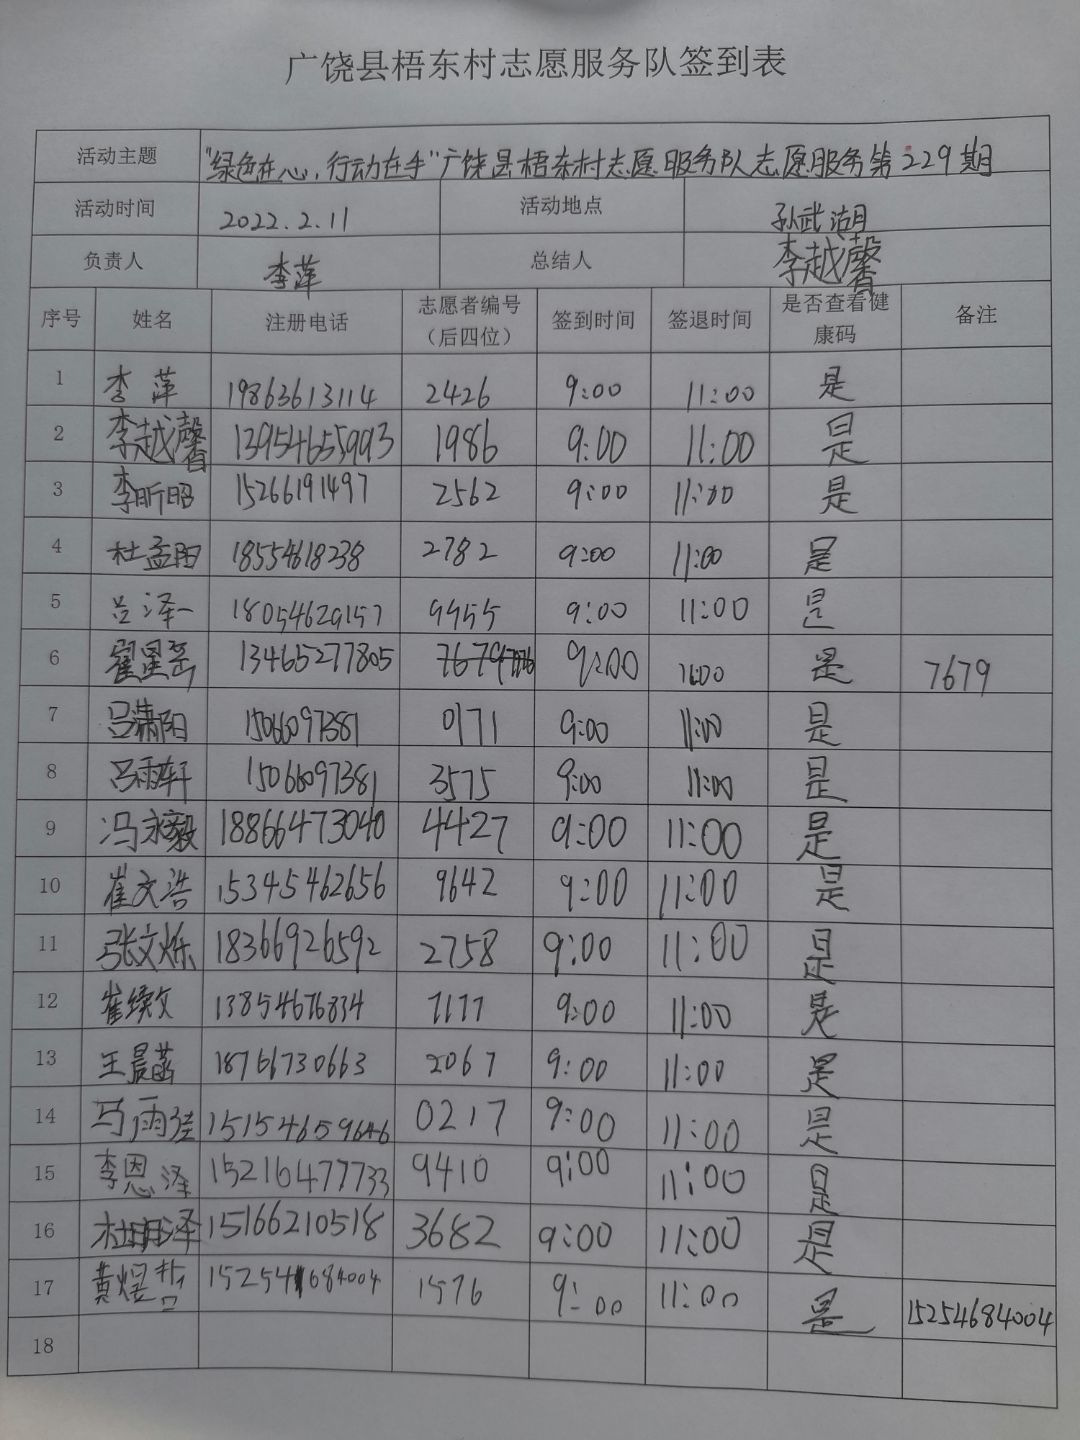 广饶县梧东村志愿服务队签到表
活动主题 "绿色在心，行动在手"广饶县梧东村志愿服务队志愿服务第229期
活动时间 2022.2.11 活动地点 孙武湖
负责人 李萍 总结人 李越馨
序号 姓名 注册电话 志愿者编号（后四位） 签到时间 签退时间 是否查看健康码 备注
1 李萍 19863613114 2426 9:00 11:00 是
2 李越馨 13954655993 1986 9:00 11:00 是
3 李昕昭 15266191497 2562 9:00 11:00 是
4 杜孟阳 18554618238 2782 9:00 11:00 是
5 吕泽一 18054629157 9955 9:00 11:00 是
6 翟星岳 13465277805 7679 9:00 11:00 是 7679
7 吕潇阳 15066097381 0171 9:00 11:00 是
8 吕雨轩 15066097381 3575 9:00 11:00 是
9 冯永毅 18866473040 4427 9:00 11:00 是
10 崔文浩 15345462656 9642 9:00 11:00 是
11 张文烁 18366926592 2758 9:00 11:00 是
12 崔续文 13854676834 7177 9:00 11:00 是
13 王晨菡 18766730663 2067 9:00 11:00 是
14 马雨 15154659646 0217 9:00 11:00 是
15 李恩泽 15216477733 9410 9:00 11:00 是
16 杜明泽 15166210518 3682 9:00 11:00 是
17 黄煜哲 1576 9:00 11:00 是 15254684004
18